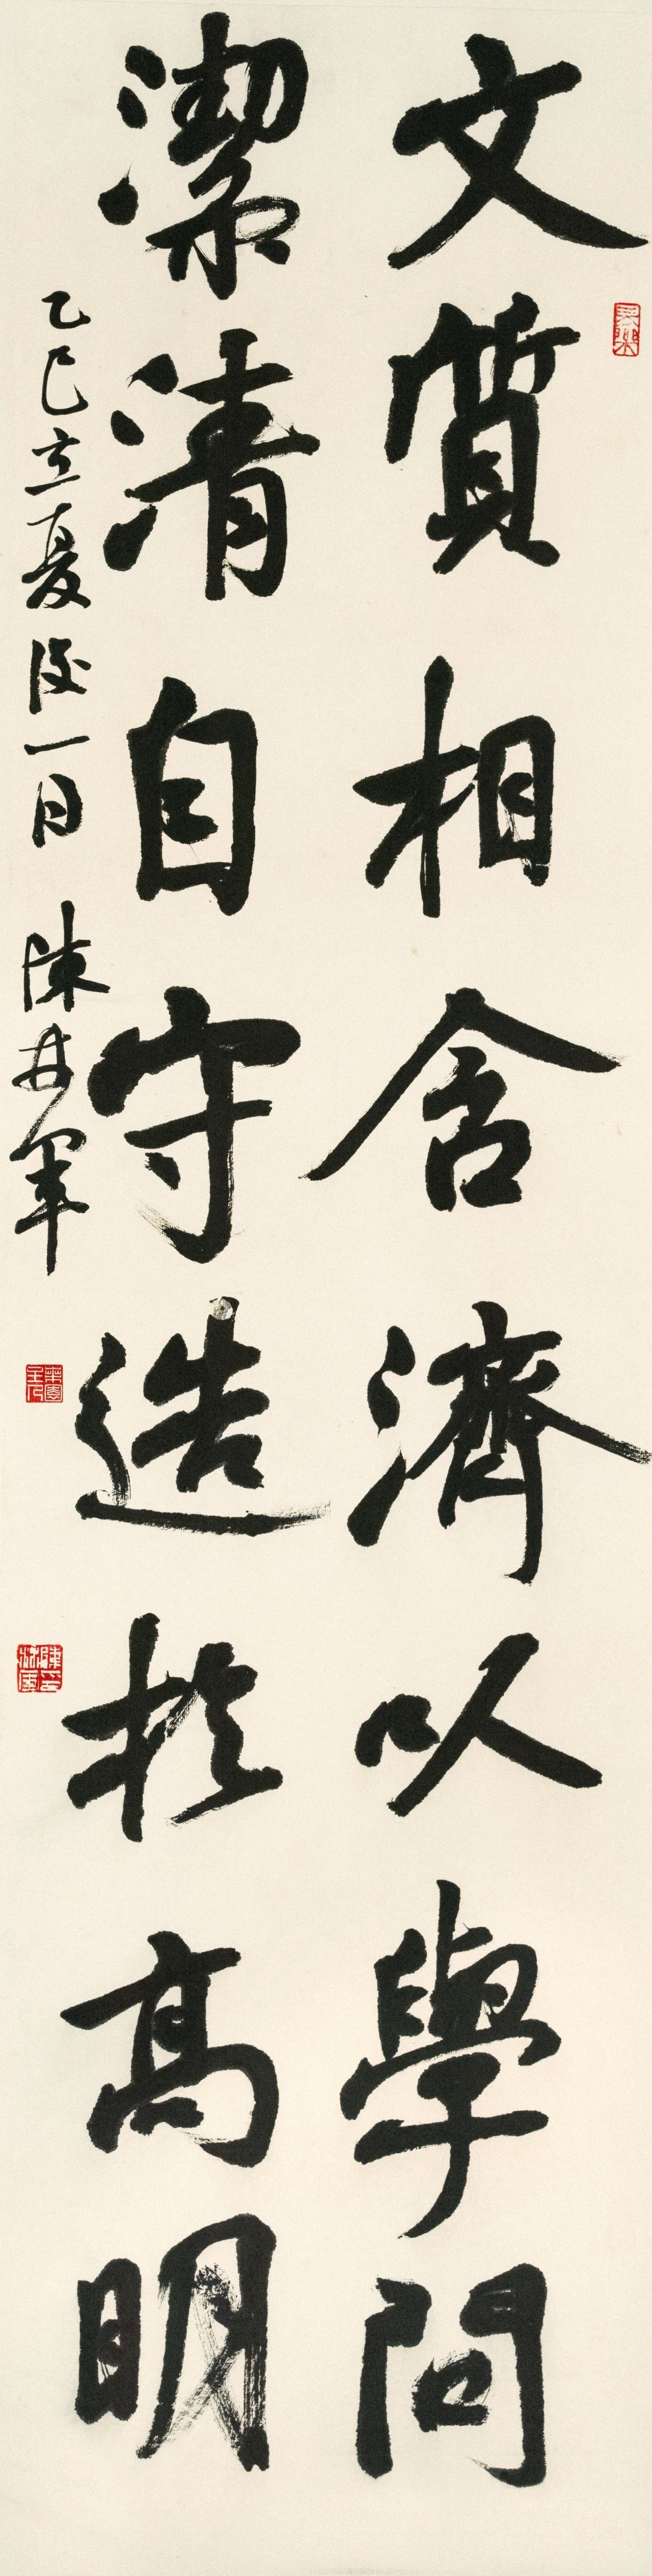 文質相含濟以學問
潔清自守造於高明
乙巳立夏後一日 陳井軍